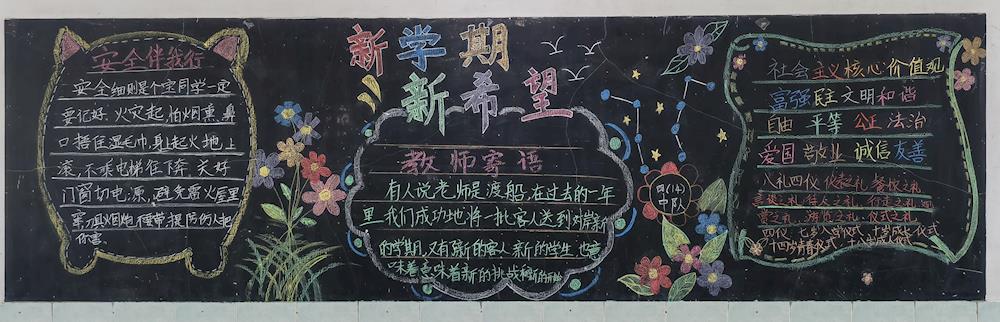 安全伴我行
安全细则是个宝同学一定
要记好 火灾起 怕烟熏 鼻
口捂住湿毛巾,身上起火地上
滚,不乘电梯往下奔 关好
门窗切电源,避免雷火屋里
新学期
新希望
教师寄语
有人说老师是渡船,在过去的一年
里,我们成功地将一批客人送到对岸新
的学期,又有新的客人 新的学生 也意
味着意味着新的挑战和新的开始
四(14)
中队
社会主义核心价值观
富强民主文明和谐
自由 平等 公正 法治
爱国 敬业 诚信友善
八礼四仪 仪表之礼 餐饮之礼
言谈之礼 待人之礼 行走之礼 观
赏之礼 游览之礼 仪式之礼
四仪 七岁入学仪式 十岁成长仪式
十四岁青春仪式 十八岁成人仪式